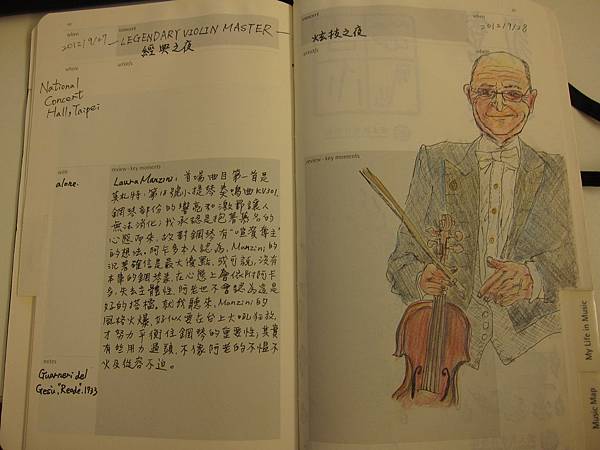 when
concert
2012/9/27 — LEGENDARY VIOLIN MASTER —
經典之夜
where
artist/s
National
Concert
Hall, Taipei
with
alone.
review - key moments
Laura Manzini, 首場曲目第一首是
莫札特·第18號小提琴奏鳴曲KV301,
鋼琴部份的響亮和激都讓人
無法消化; 我承認是抱著為名的
心態而來, 故對鋼琴有"喧賓奪主"
的想法。阿卡多本人認為, Manzini的
沉著確信是最大優點, 或可說, 沒有
本事的鋼琴家, 在心態上會依附阿卡
多, 失去主體性, 阿老也不會認為這是
好的搭檔。就我聽來, Manzini的
風格火爆, 好似要在台上大吼狂放,
才努力平衡住鋼琴的重要性; 其實
有些用力過頭, 不像阿老的不慍不
火及從容不迫。
notes
Guarneri del
Gesù, "Reade", 1733
concert
炫技之夜
when
2012/9/28
artist/s
where
review - key moments
My Life in Music
Music Map